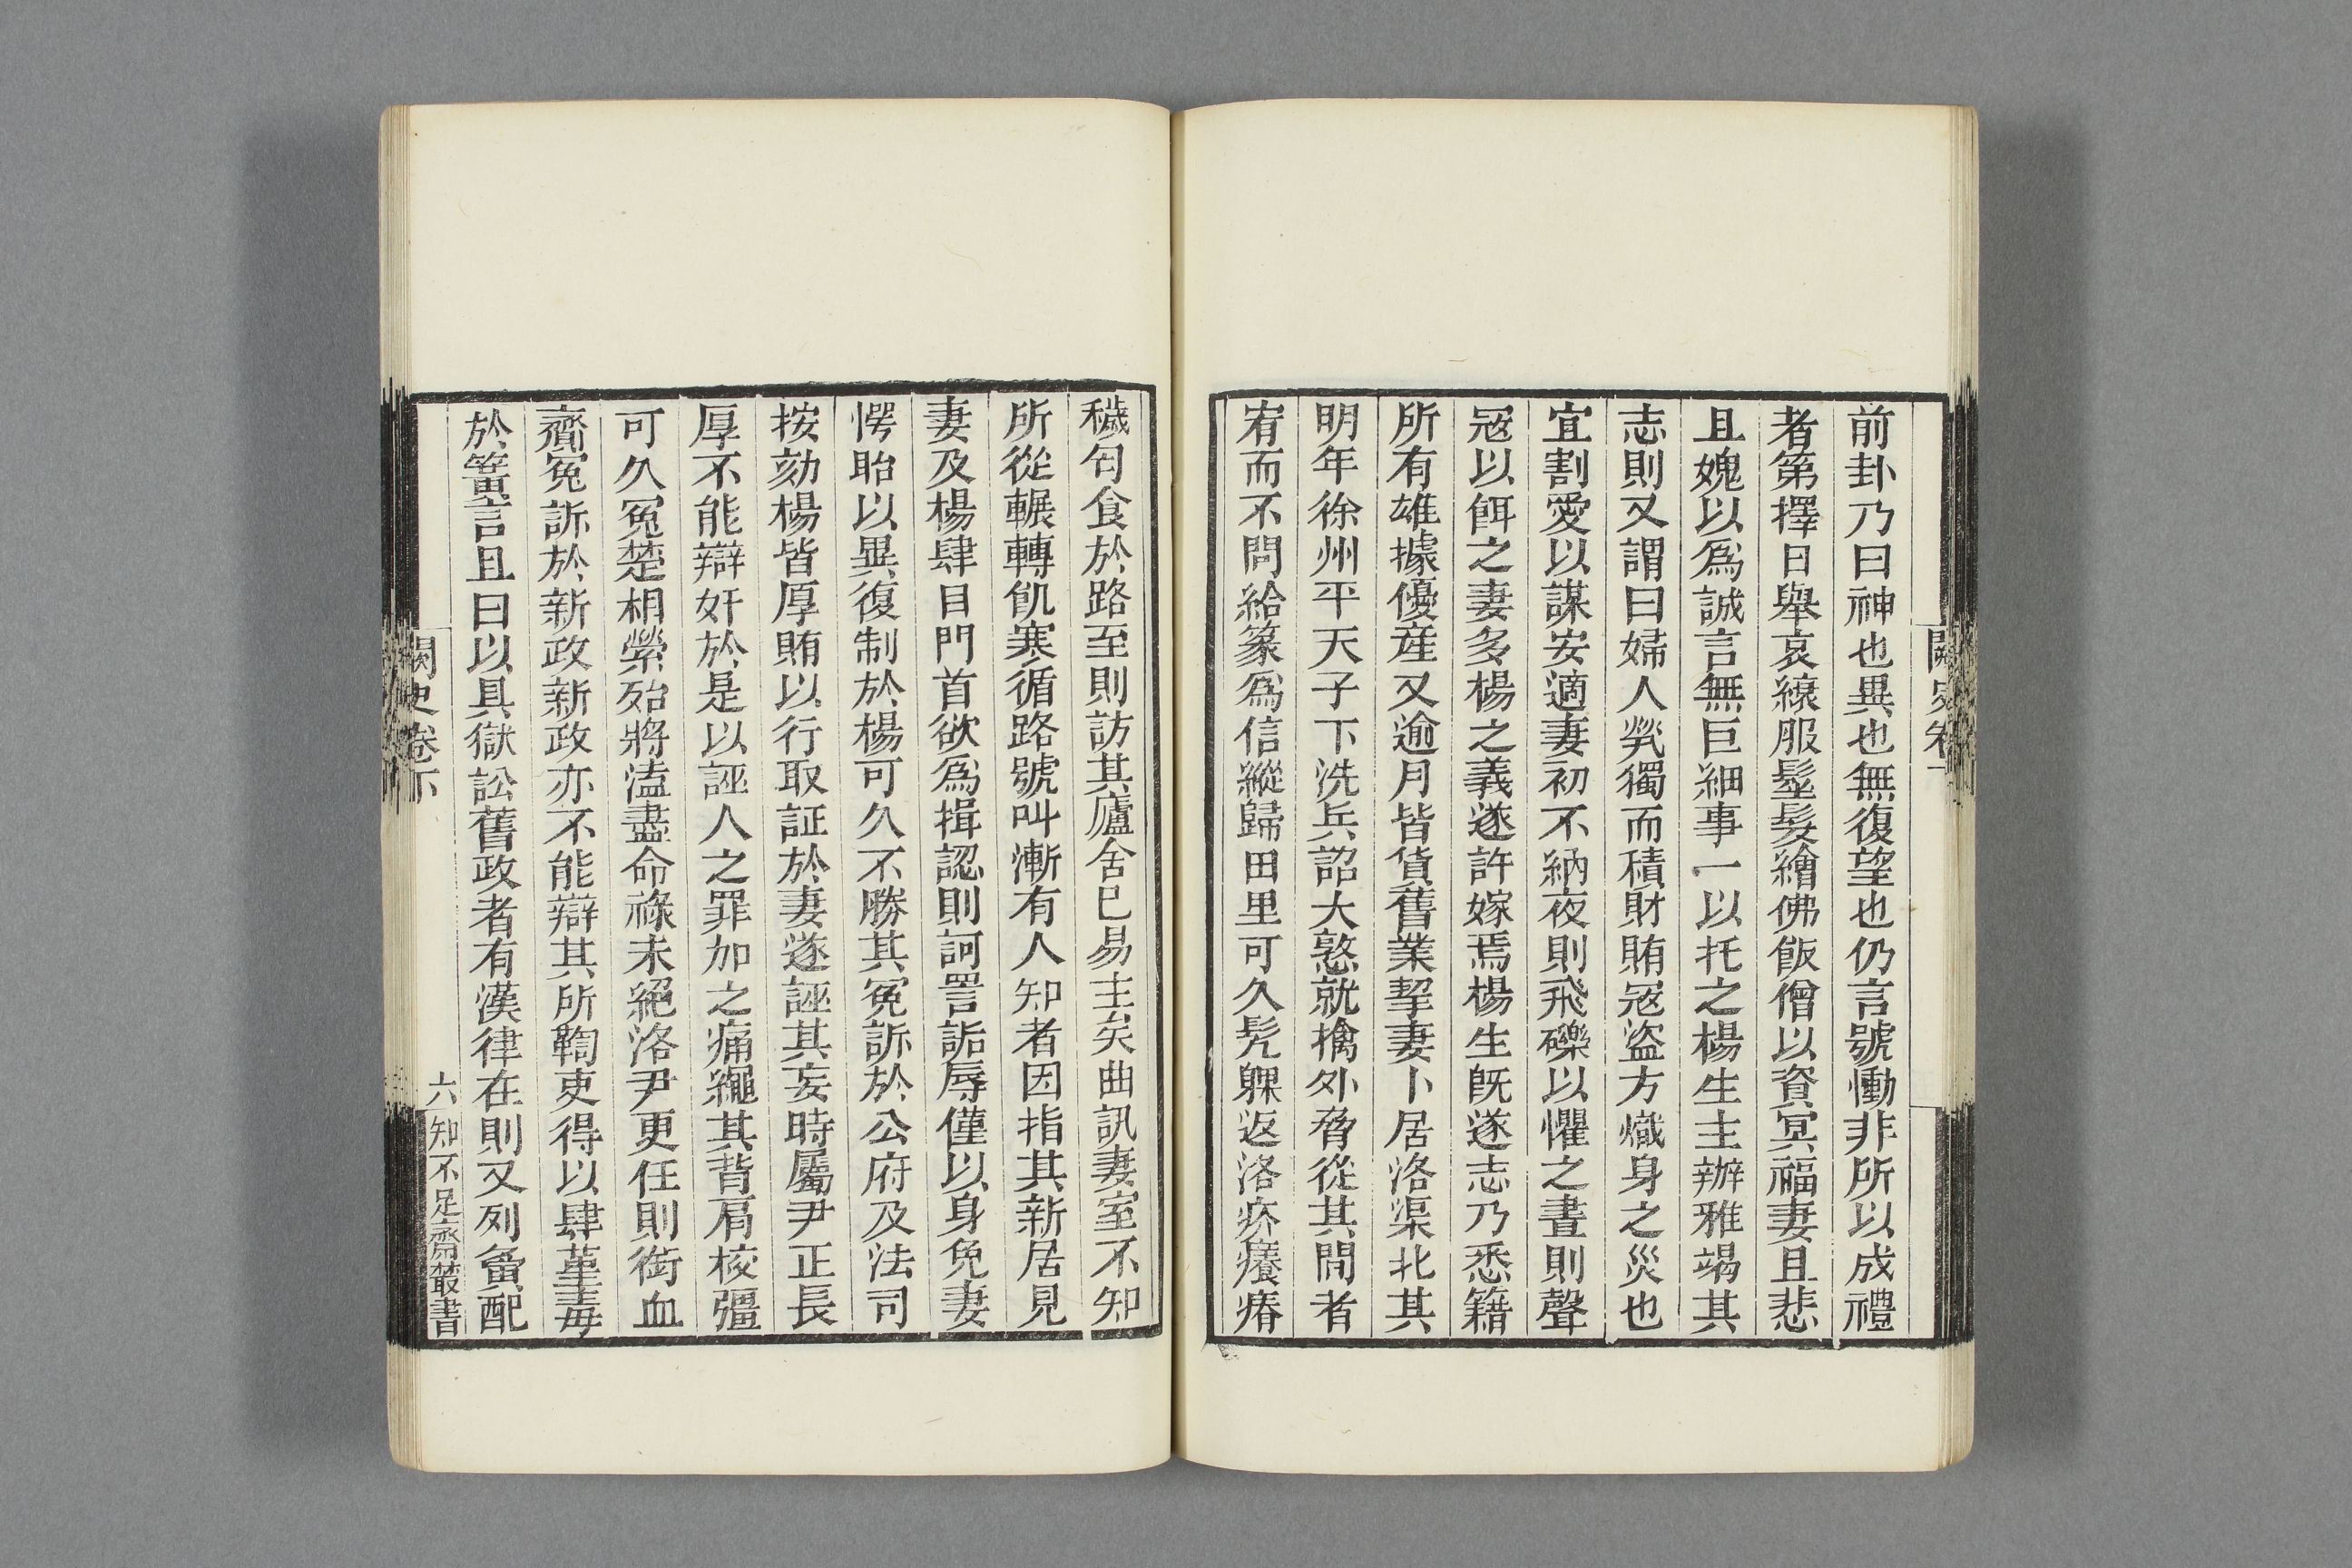 前卦乃曰神也異也無復望也仍言號慟非所以成禮
者第擇日舉哀縗服髽髮繪佛飯僧以資冥福妻且悲
且媿以爲誠言無巨細事一以托之楊生主辦雅竭其
志則又謂曰婦人煢獨而積財賄寇盜方熾身之災也
宜割愛以謀安適妻初不納夜則飛礫以懼之晝則聲
寇以餌之妻多楊之義遂許嫁焉楊生既遂志乃悉籍
所有雄據優產又逾月皆貨舊業挈妻卜居洛渠北其
明年徐州平天子下洗兵詔大憝就擒外脅從其間者
宥而不問給篆爲信縱歸田里可久髠躶返洛疥癢瘠
穢匄食於路至則訪其廬舍已易主矣曲訊妻室不知
所從輾轉飢寒循路號叫漸有人知者因指其新居見
妻及楊肆目門首欲爲揖認則訶詈詬辱僅以身免妻
愕眙以異復制於楊可久不勝其冤訴於公府及法司
按劾楊皆厚賄以行取証於妻遂誣其妄時屬尹正長
厚不能辯奸於是以誣人之罪加之痛繩其背肩校彊
可久冤楚相縈殆將溘盡命祿未絕洛尹更任則銜血
齎冤訴於新政新政亦不能辯其所鞫吏得以肆堇毒
於簧言且曰以具獄訟舊政者有漢律在則又列畬配
闕史卷下
六
知不足齋叢書